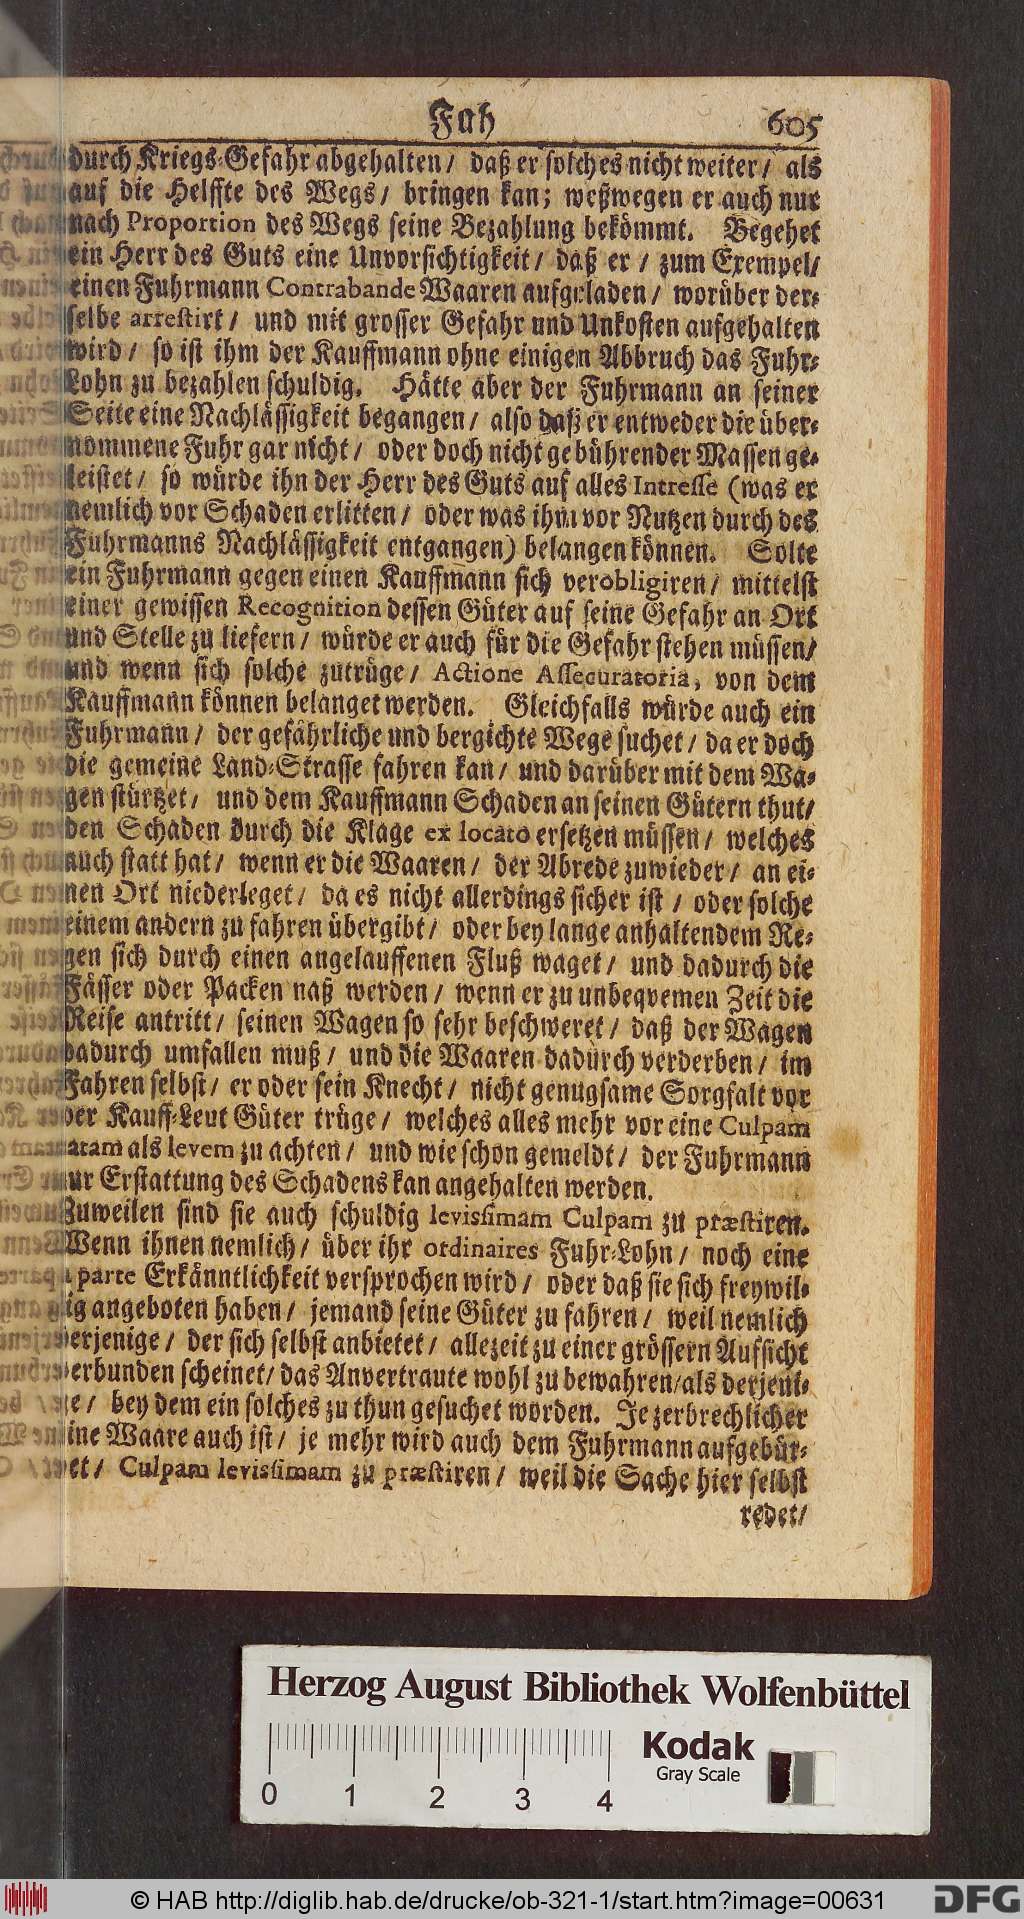 Fuh
605
durch Kriegs-Gefahr abgehalten / daß er solches nicht weiter / als
auf die Helffte des Wegs / bringen kan; weßwegen er auch nur
nach Proportion des Wegs seine Bezahlung bekömmt. Begehet
ein Herr des Guts eine Unvorsichtigkeit / daß er / zum Exempel /
einen Fuhrmann Contrabande Waaren aufgeladen / worüber der-
selbe arrestirt / und mit grosser Gefahr und Unkosten aufgehalten
wird / so ist ihm der Kauffmann ohne einigen Abbruch das Fuhr-
Lohn zu bezahlen schuldig. Hätte aber der Fuhrmann an seiner
Seite eine Nachlässigkeit begangen / also daß er entweder die über-
nommene Fuhr gar nicht / oder doch nicht gebührender Massen ge-
leistet / so würde ihn der Herr des Guts auf alles Intresse (was er
nemlich vor Schaden erlitten / oder was ihm vor Nutzen durch des
Fuhrmanns Nachlässigkeit entgangen) belangen können. Solte
ein Fuhrmann gegen einen Kauffmann sich verobligiren / mittelst
einer gewissen Recognition dessen Güter auf seine Gefahr an Ort
und Stelle zu liefern / würde er auch für die Gefahr stehen müssen /
und wenn sich solche zutrüge / Actione Assecuratoria, von dem
Kauffmann können belanget werden. Gleichfalls würde auch ein
Fuhrmann / der gefährliche und bergichte Wege suchet / da er doch
die gemeine Land-Strasse fahren kan / und darüber mit dem Wa-
gen stürtzet / und dem Kauffmann Schaden an seinen Gütern thut /
den Schaden durch die Klage ex locato ersetzen müssen / welches
auch statt hat / wenn er die Waaren / der Abrede zuwieder / an ei-
nen Ort niederleget / da es nicht allerdings sicher ist / oder solche
einem andern zu fahren übergibt / oder bey lange anhaltendem Re-
gen sich durch einen angelauffenen Fluß waget / und dadurch die
Fässer oder Packen naß werden / wenn er zu unbeqvemen Zeit die
Reise antritt / seinen Wagen so sehr beschweret / daß der Wagen
dadurch umfallen muß / und die Waaren dadurch verderben / im
Fahren selbst / er oder sein Knecht / nicht genugsame Sorgfalt vor
der Kauff-Leut Güter trüge / welches alles mehr vor eine Culpam
latam als levem zu achten / und wie schon gemeldt / der Fuhrmann
zur Erstattung des Schadens kan angehalten werden.
Zuweilen sind sie auch schuldig levissimam Culpam zu præstiren.
Wenn ihnen nemlich / über ihr ordinaires Fuhr-Lohn / noch eine
à parte Erkänntlichkeit versprochen wird / oder daß sie sich freywil-
lig angeboten haben / jemand seine Güter zu fahren / weil nemlich
derjenige / der sich selbst anbietet / allezeit zu einer grössern Aufsicht
verbunden scheinet / das Anvertraute wohl zu bewahren / als derjeni-
ge / bey dem ein solches zu thun gesuchet worden. Je zerbrechlicher
eine Waare auch ist / je mehr wird auch dem Fuhrmann aufgebür-
det / Culpam levissimam zu præstiren / weil die Sache hier selbst
redet /
Herzog August Bibliothek Wolfenbüttel
0 1 2 3 4
Kodak
Gray Scale
© HAB http://diglib.hab.de/drucke/ob-321-1/start.htm?image=00631
DFG